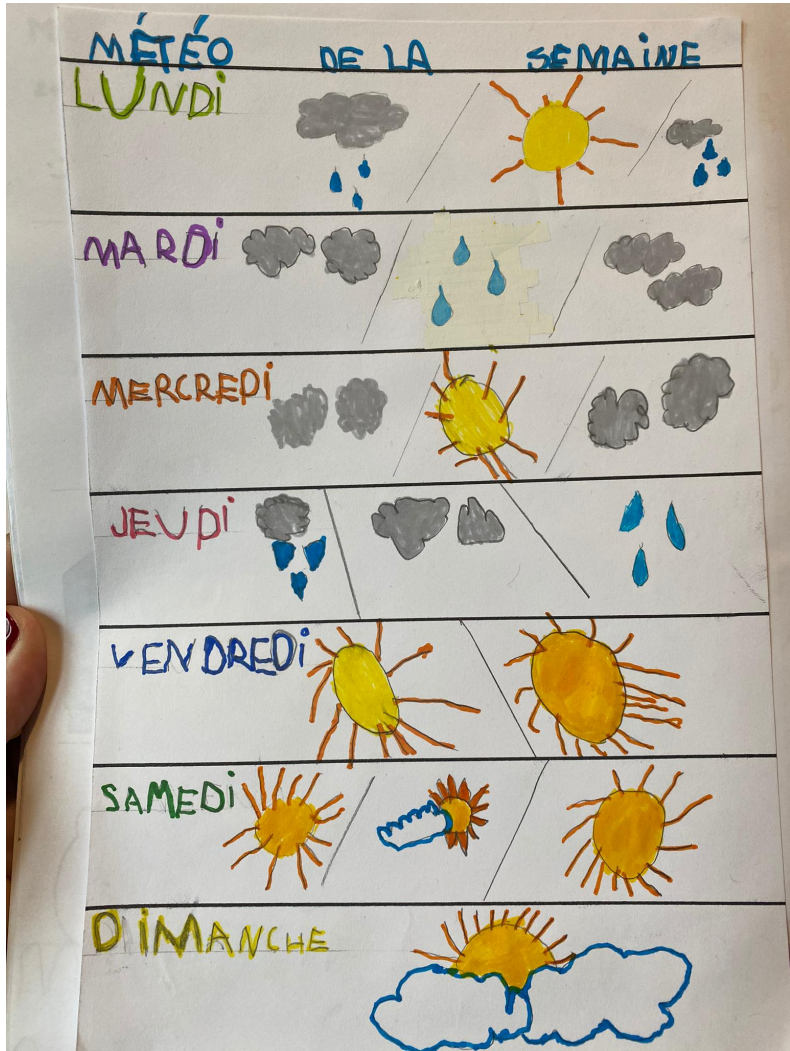 MÉTÉO DE LA SEMAiNE
LUNDi
MARDi
MERCREDi
JEUDi
VENDREDi
SAMEDi
DiMANCHE